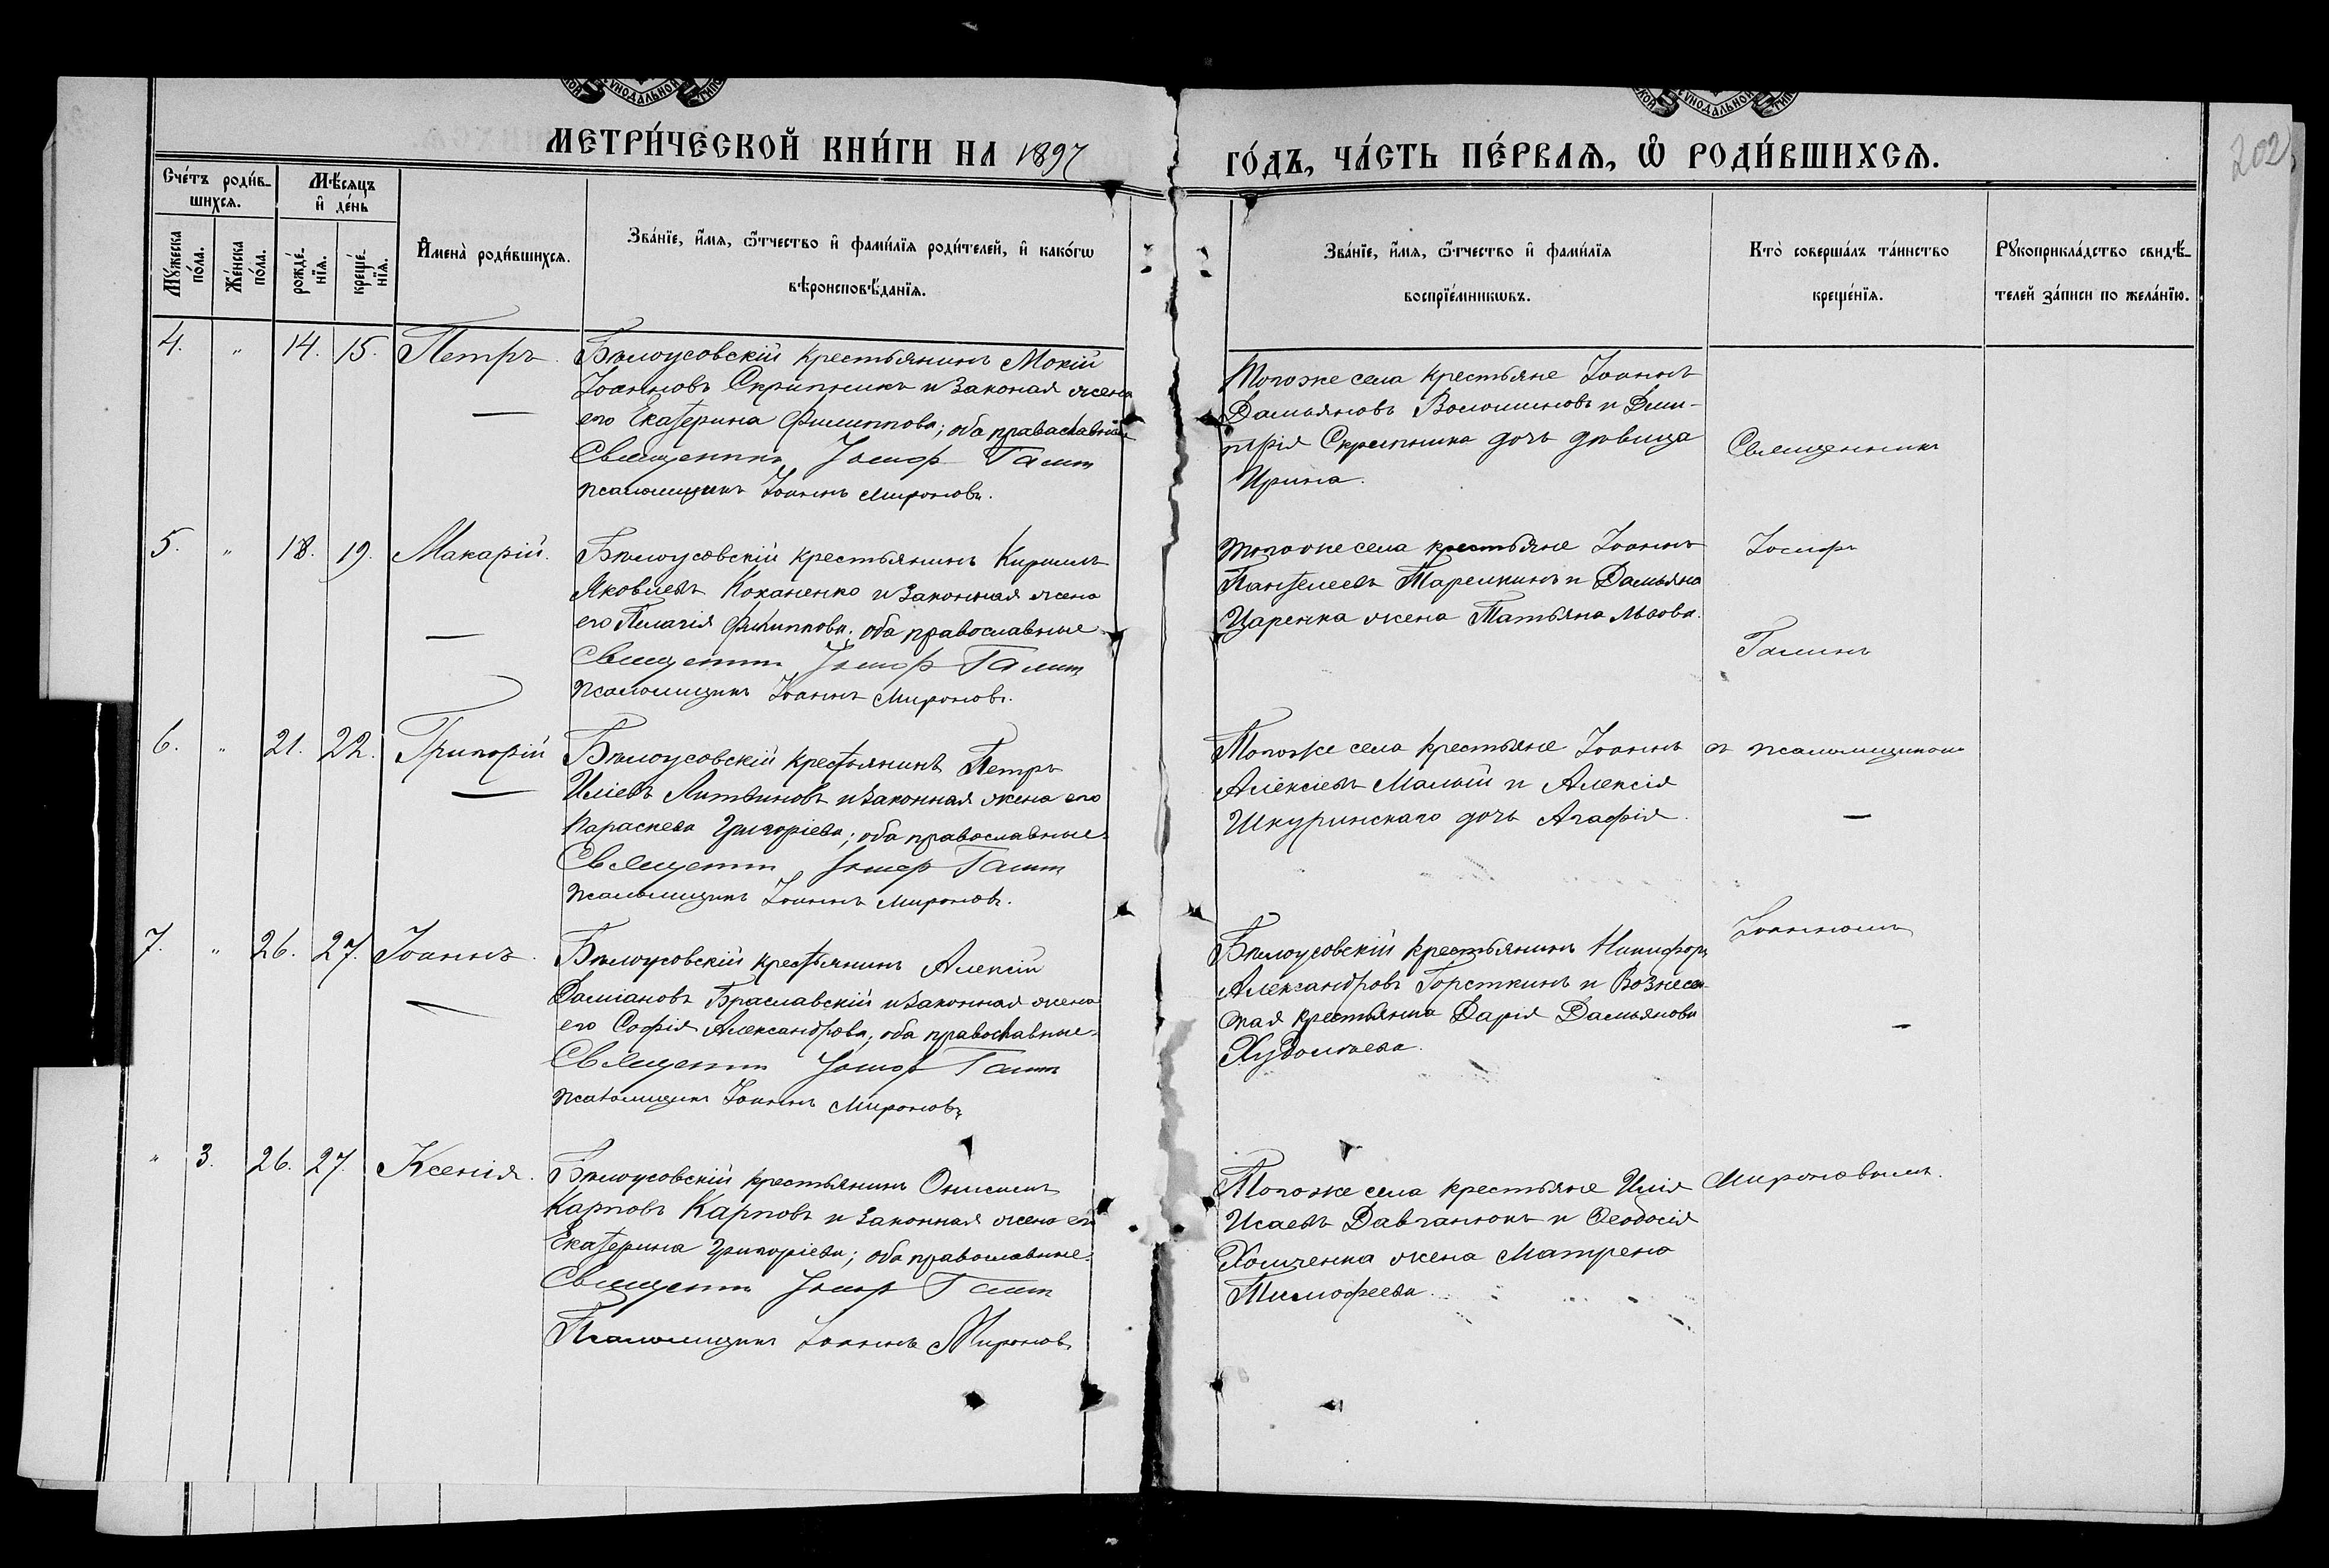 МЕТРИ́ЧЕСКОЙ КНИ́ГИ НА 1897
ГО́ДЪ, ЧА́СТЬ ПЕ́РВАѦ, Ѽ РОДИ́ВШИХСѦ.
202
Сче́тъ роди́в-
шихсѧ.
Мѣ́сѧцъ
и҆ де́нь
Мꙋ́жеска по́ла.
Же́нска по́ла.
рожде́-
нїѧ.
креще́-
нїѧ.
И҆мена̀ роди́вшихсѧ.
Зва́нїе, и҆́мѧ, ѻ҆́тчество и҆ фами́лїѧ роди́телей, и҆ како́гѡ
вѣроисповѣ́данїѧ.
Зва́нїе, и҆́мѧ, ѻ҆́тчество и҆ фами́лїѧ
воспрїе́мникѡвъ.
Кто̀ соверша́лъ та́инство
креще́нїѧ.
Рꙋкоприкла́дство свидѣ́-
телей за́писи по жела́нїю.
4. " 14. 15. Петръ
Бѣлоусовскій крестьянинъ Мокій
Іоанновъ Скрипникъ и законая жена
его Екатерина Филиппова; оба православные
Священникъ Іосиф Галин
псаломщикъ Іоаннъ Мироновъ.
Тогоже села крестьяне Іоаннъ
Дамьяновъ Волошиновъ и Дми-
трія Скрипника дочь дѣвица
Ирина.
Священникъ
5. " 18. 19. Макарій.
Бѣлоусовскій крестьянинъ Кириллъ
Яковлевъ Коханенко и законная жена
его Пелагія Филиппова; оба православные
Священник Іосиф Галин
псаломщикъ Іоаннъ Мироновъ.
Тогоже села крестьяне Іоаннъ
Пантелеевъ Тарелкинъ и Дамьяна
Царенка жена Татьяна Львова.
Іосифъ
Галинъ
6. " 21. 22. Григорій
Бѣлоусовскій крестьянинъ Петръ
Иліевъ Литвиновъ и законная жена его
Параскева Григоріева; оба православные.
Священник Іосиф Галин
псаломщикъ Іоаннъ Мироновъ.
Тогоже села крестьяне Іоаннъ
Алексіевъ Малый и Алексія
Шкуринскаго дочь Агафія.
съ псаломщикомъ
7. " 26. 27. Іоаннъ.
Бѣлоусовскій крестьянинъ Алексій
Даміановъ Браславскій и законная жена
его Софія Александрова; оба православные.
Священник Іосиф Галин
псаломщикъ Іоаннъ Мироновъ
Бѣлоусовскій крестьянинъ Никифоръ
Александровъ Горсткинъ и Вознесен-
ская крестьянка Дарія Дамьянова
Іоанномъ
" 3. 26. 27. Ксенія.
Бѣлоусовскій крестьянинъ Онисимъ
Карповъ Карповъ и законная жена его
Екатерина Григоріева; оба православные.
Священник Іосиф Галин
Псаломщикъ Іоаннъ Мироновъ
Тогоже села крестьяне Илія
Исаевъ Давганюкъ и Феодосія
Хомченка жена Матрена
Тимофеева.
Мироновымъ.